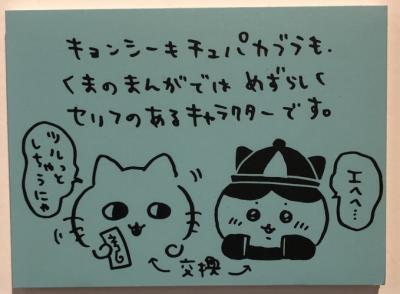 キョンシーもチュパカブラも、
くまのまんがでは めずらしく
セリフのあるキャラクターです。
ツルっと
しちゃうにゃ
エヘヘ…
←交換→